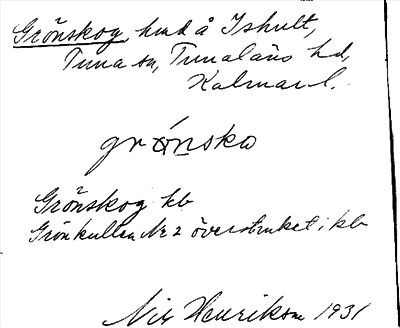 Grönskog, hmd å Ishult,
Tuna sn, Tunaläns hd,
Kalmar l.
grönsko
Grönskog kb
Grönkullen Nr 2 överstruket i kb
Nils Henrikson 1931